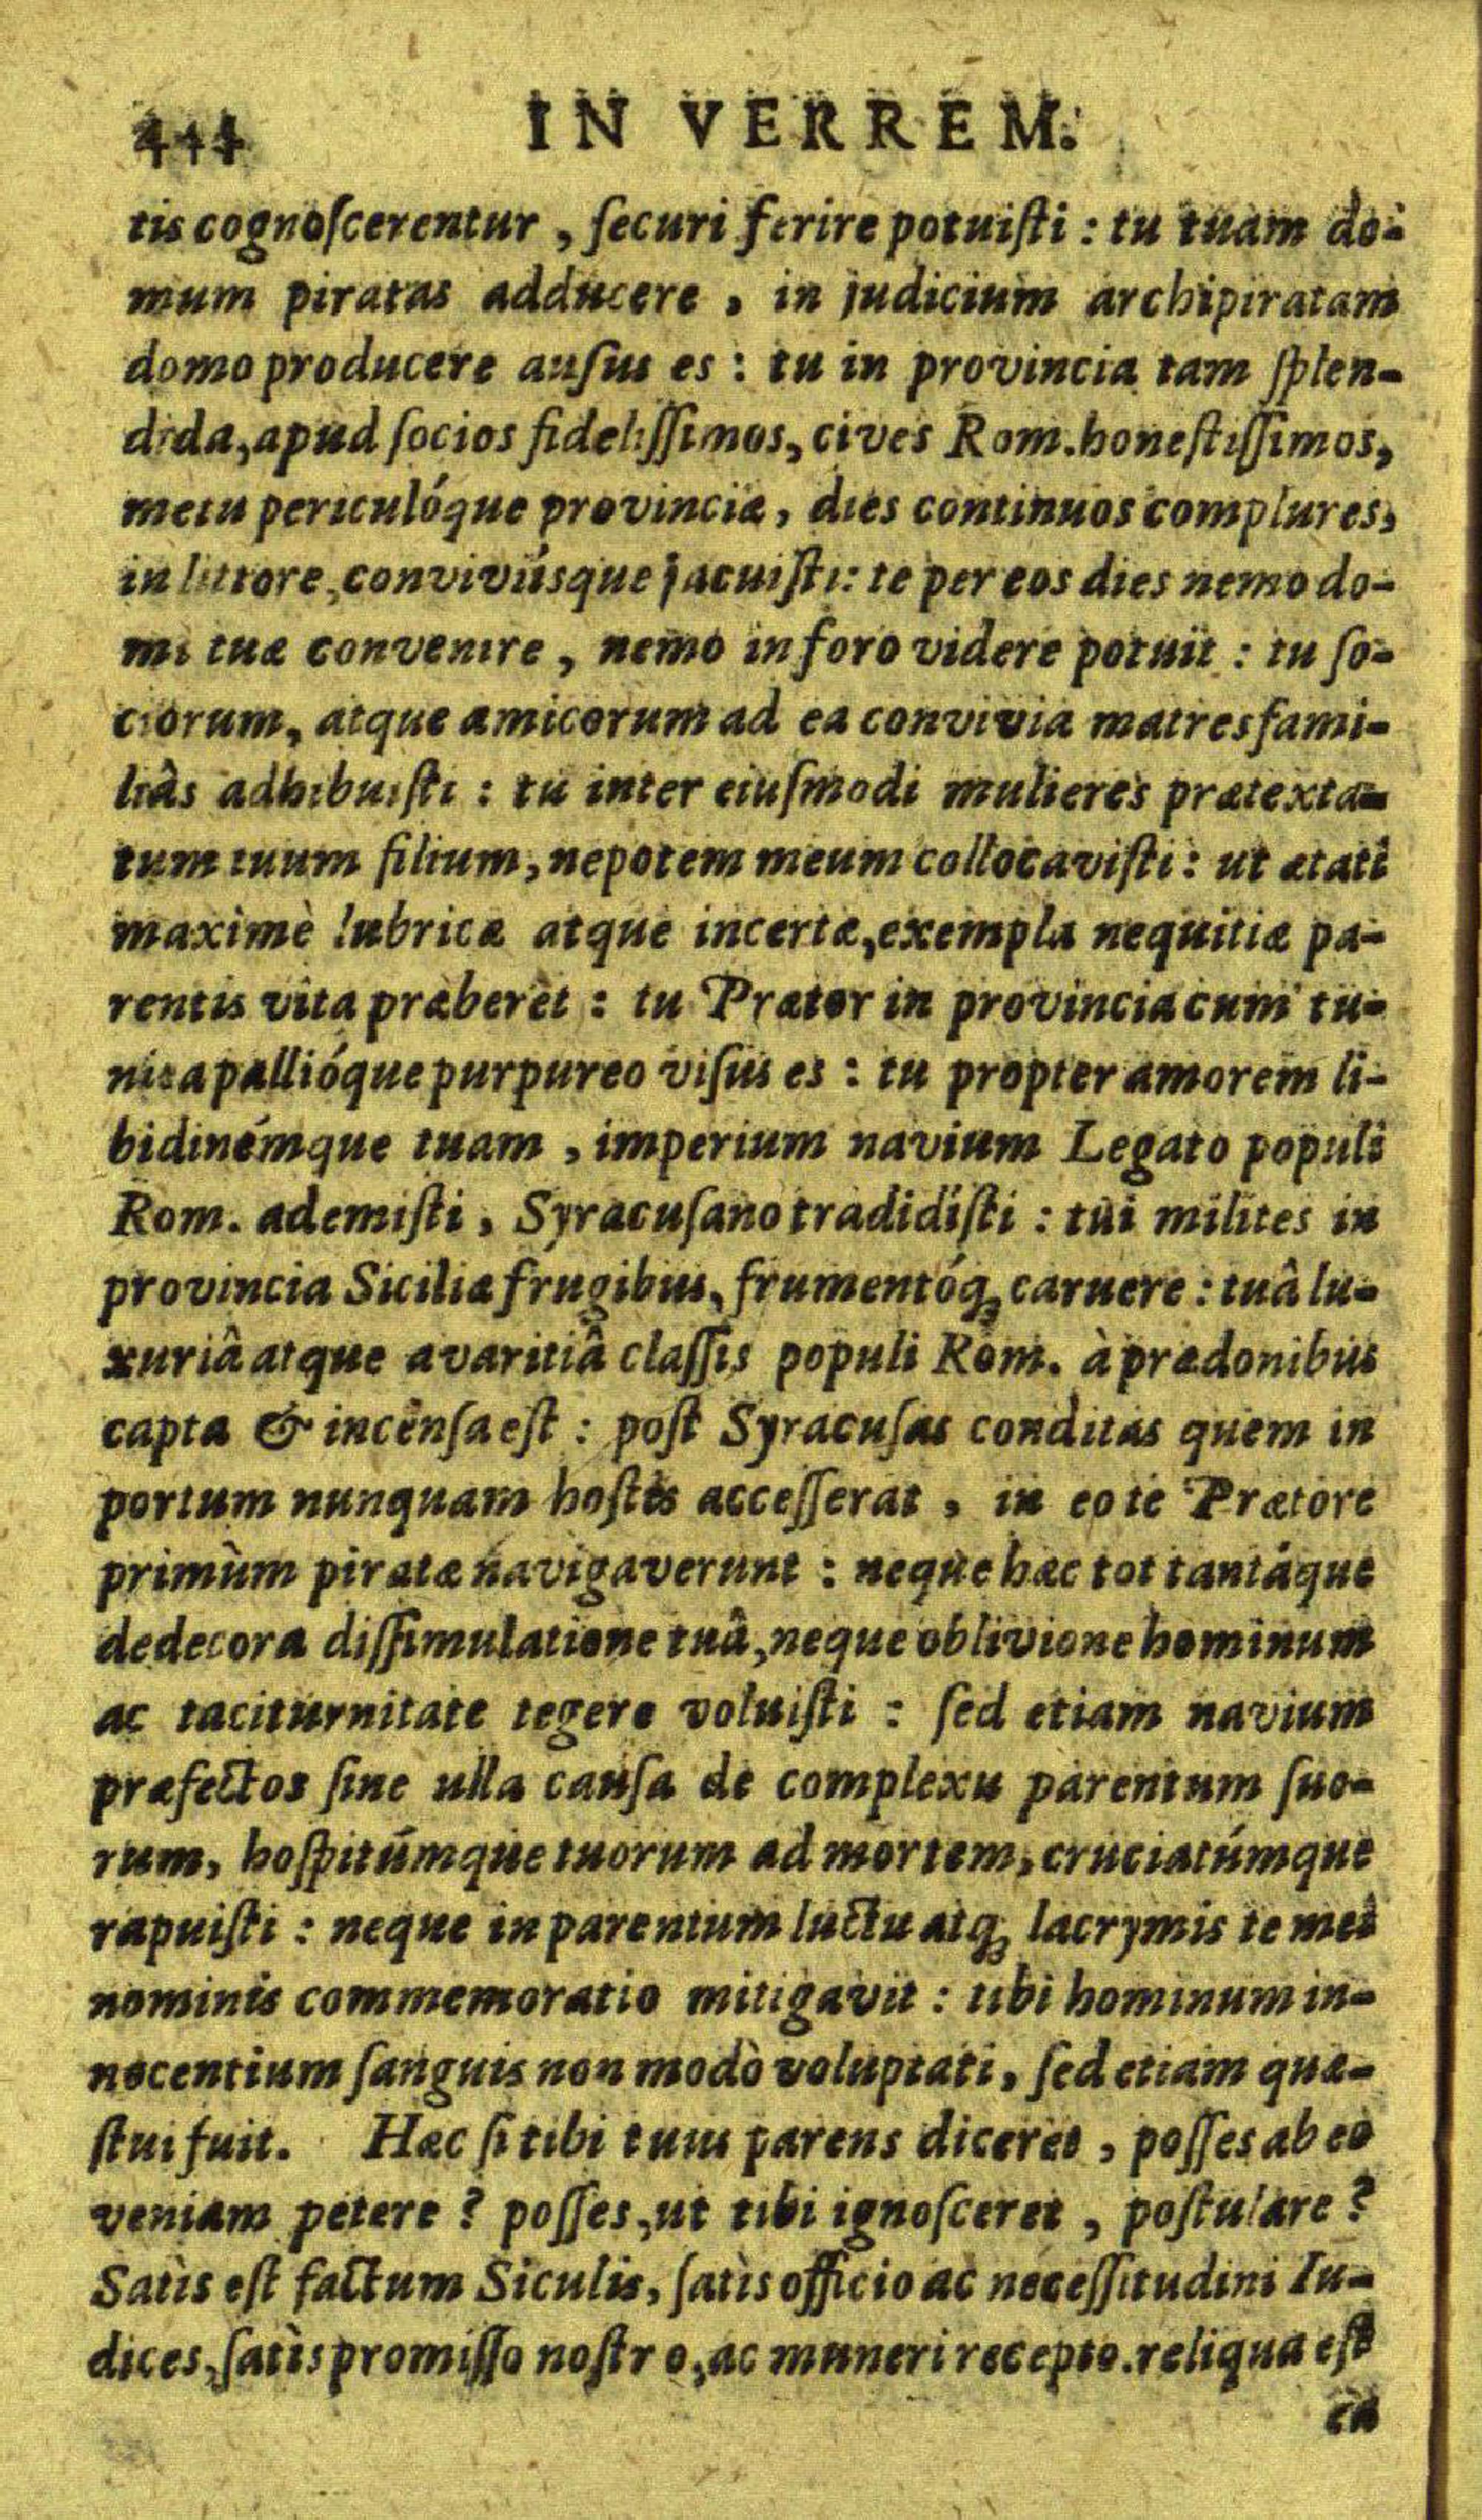 IN VERREM.
tis cognoſcerentur, ſecuri ferire potuiſti : tu tuam do-
mum piratas adducere, in judicium archipiratam
domo producere auſus es : tu in provincia tam ſplen-
dida, apud ſocios fideliſſimos, cives Rom. honeſtiſſimos,
metu periculóque provinciæ, dies continuos complures,
in littore, conviviisque jacuiſti: te per eos dies nemo do-
mi tuæ convenire, nemo in foro videre potuit : tu ſo-
ciorum, atque amicorum ad ea convivia matresfami-
liâs adhibuiſti : tu inter eiuſmodi mulieres prætexta-
tum tuum filium, nepotem meum collocaviſti : ut ætati
maximè lubricæ atque incertæ, exempla nequitiæ pa-
rentis vita præberet : tu Prætor in provincia cum tu-
nica pallióque purpureo viſus es : tu propter amorem li-
bidinémque tuam, imperium navium Legato populi
Rom. ademiſti, Syracuſano tradidiſti : tui milites in
provincia Siciliæ frugibus, frumentóq; caruere : tuâ lu-
xuriâ atque avaritiâ claſſis populi Rom. à prædonibus
capta & incenſa eſt : poſt Syracuſas conditas quem in
portum nunquam hoſtis acceſſerat, in eo te Prætore
primùm piratæ navigaverunt : neque hæc tot tantáque
dedecora diſſimulatione tuâ, neque oblivione hominum
ac taciturnitate tegere voluiſti : ſed etiam navium
præfectos ſine ulla cauſa de complexu parentum ſuo-
rum, hoſpitúmque tuorum ad mortem, cruciatúmque
rapuiſti : neque in parentum luctu atq; lacrymis te mei
nominis commemoratio mitigavit : tibi hominum in-
nocentium ſanguis non modò voluptati, ſed etiam quæ-
ſtui fuit. Hæc ſi tibi tuus parens diceret, poſſes ab eo
veniam petere ? poſſes, ut tibi ignoſceret, poſtulare ?
Satìs eſt factum Siculis, ſatìs officio ac neceſſitudini Iu-
dices, ſatìs promiſſo noſtro, ac muneri recepto. reliqua eſt
ea